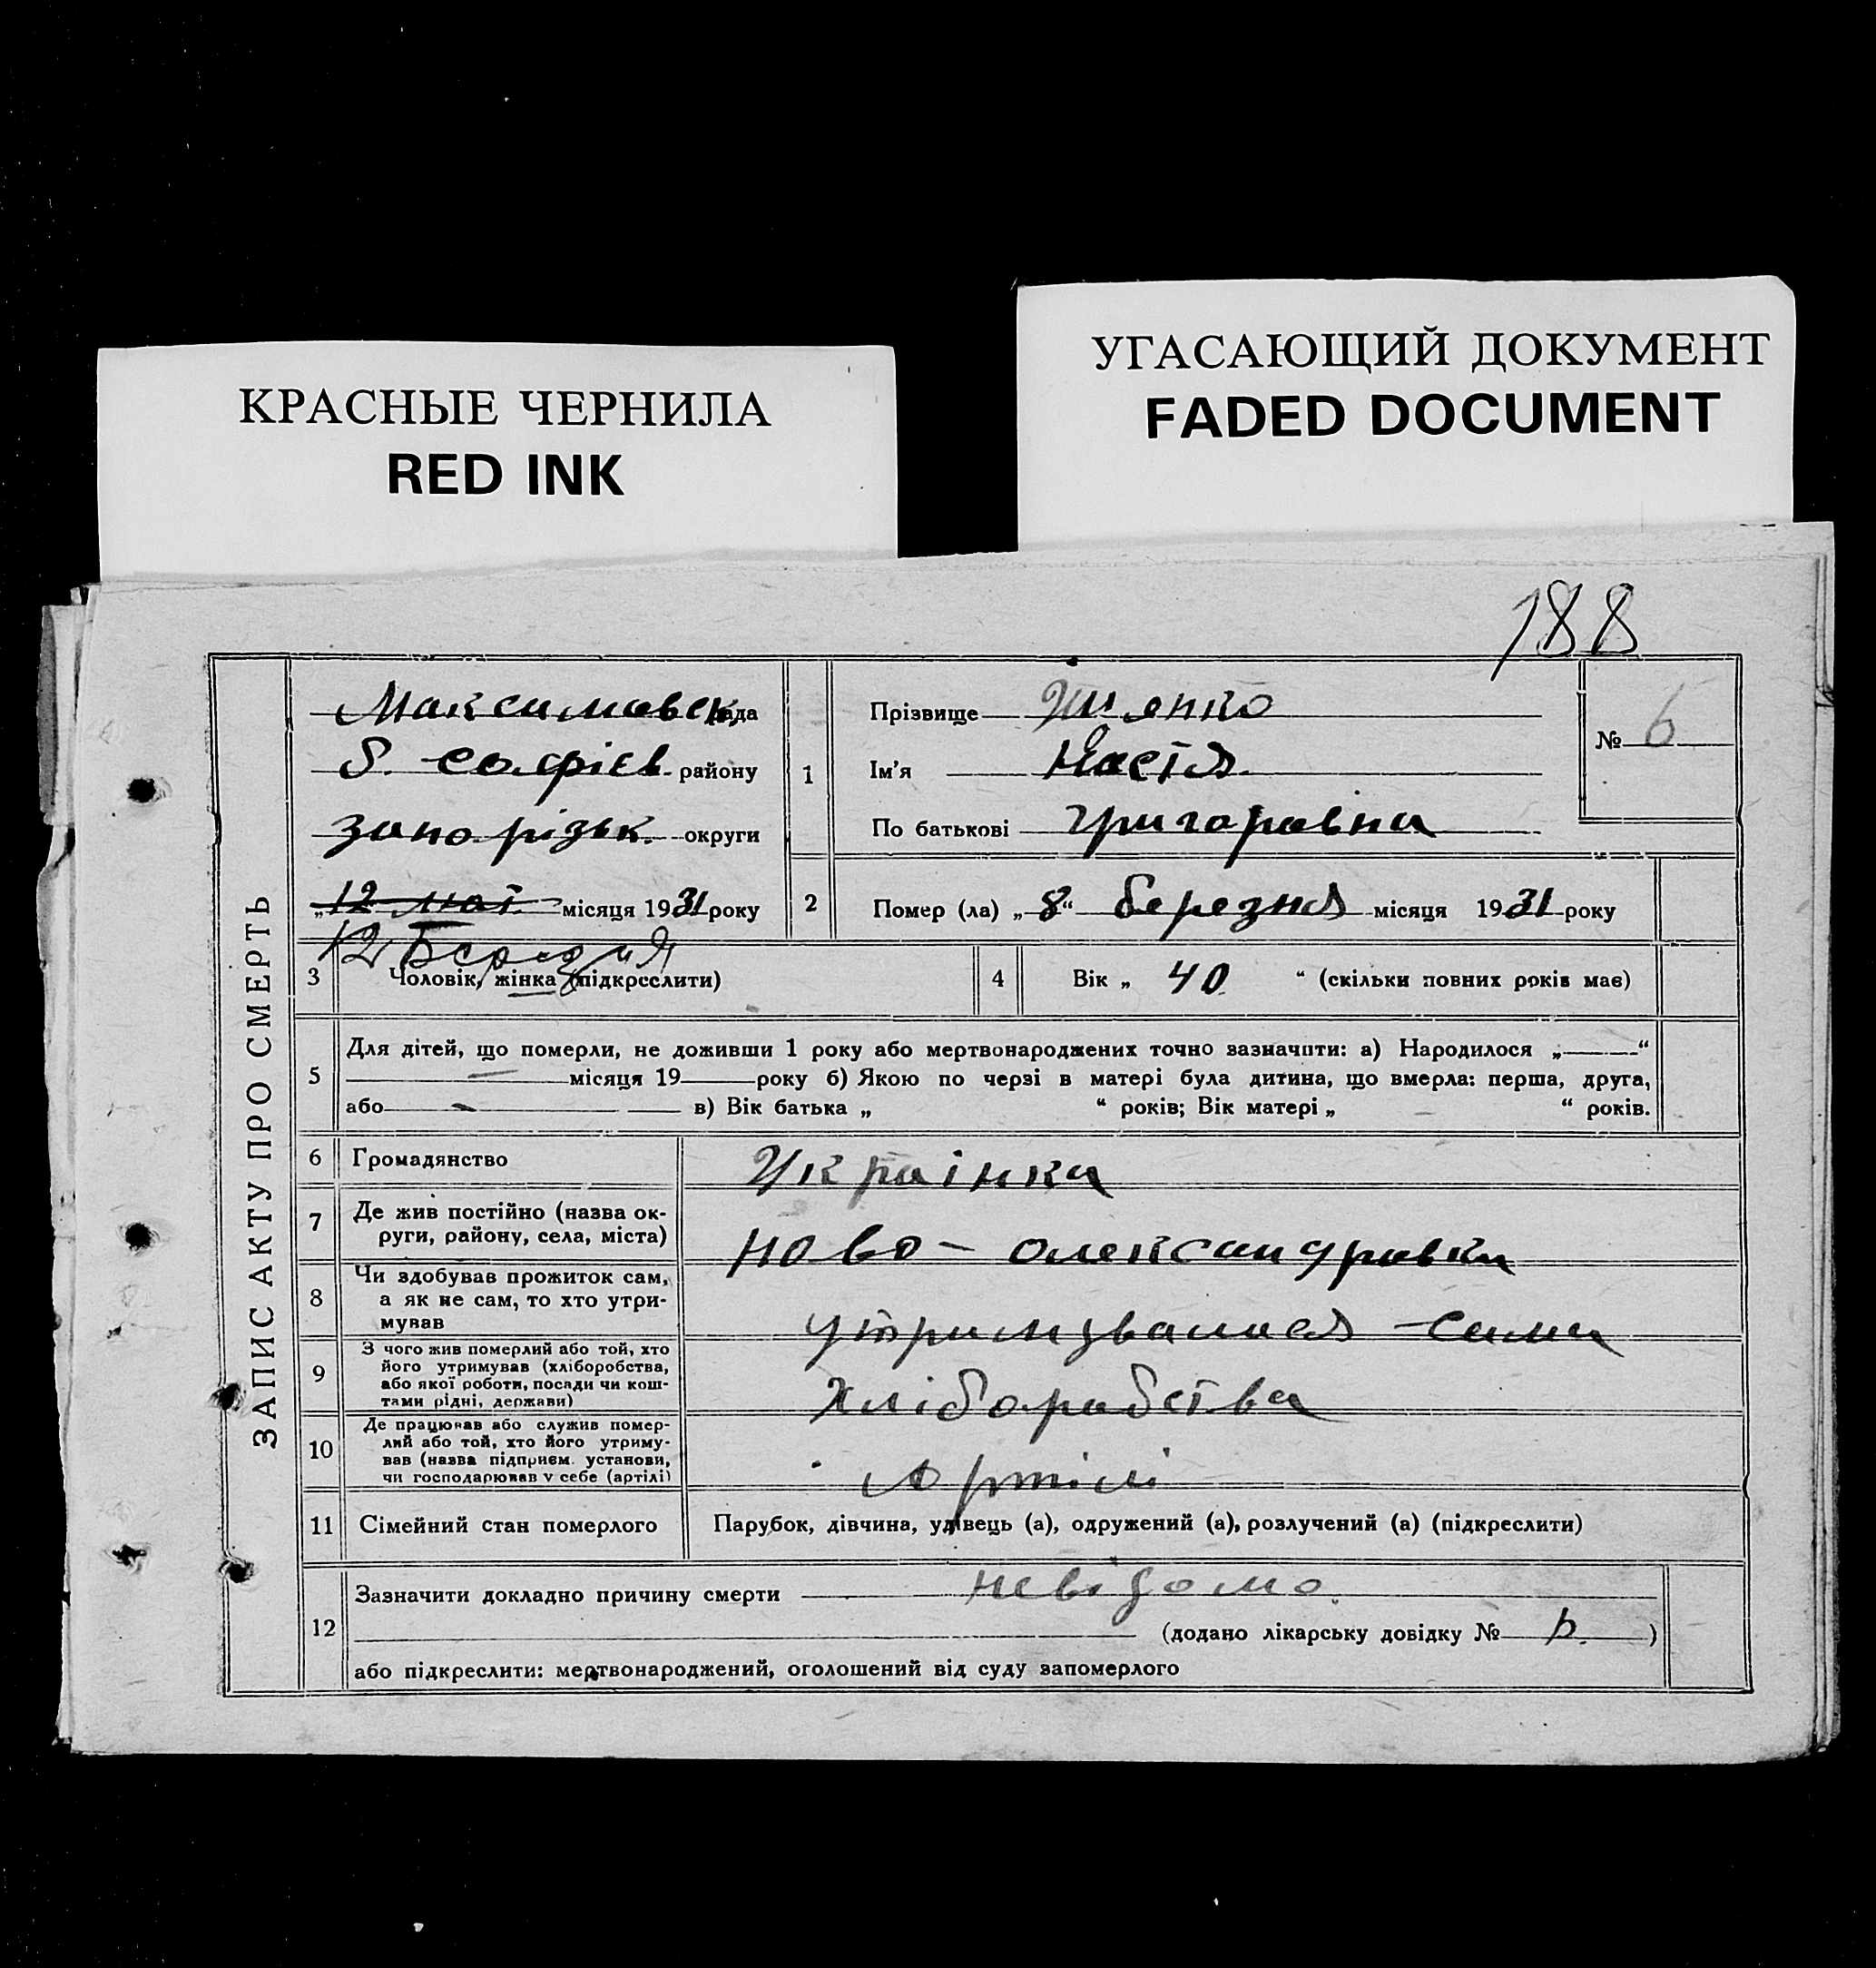 КРАСНЫЕ ЧЕРНИЛА
RED INK
УГАСАЮЩИЙ ДОКУМЕНТ
FADED DOCUMENT
188
ЗАПИС АКТУ ПРО СМЕРТЬ
Максимовск. рада
б. софієв. району
запорізьк. округи
„12 лют. місяця 1931 року
12 Березня
1
Прізвище
Ім'я Настя
По батькові григоровна
№ 6
2
Помер (ла) „8“ березня місяця 1931 року
3
Чоловік, жінка (підкреслити)
4
Вік „ 40 “ (скільки повних років має)
5
Для дітей, що померли, не доживши 1 року або мертвонароджених точно зазначити: а) Народилося „ — “
— місяця 19 року б) Якою по черзі в матері була дитина, що вмерла: перша, друга,
або — в) Вік батька „ “ років; Вік матері „ — “ років.
6
Громадянство
Украінка
7
Де жив постійно (назва ок-
руги, району, села, міста)
Ново - олександровка
8
Чи здобував прожиток сам,
а як не сам, то хто утри-
мував
утримувалася - сама
9
З чого жив померлий або той, хто
його утримував (хліборобства,
або якої роботи, посади чи кош-
тами рідні, держави)
Хліборобства
10
Де працював або служив помер-
лий або той, хто його утриму-
вав (назва підприєм. установи,
чи господарював у себе (артілі)
Артілі
11
Сімейний стан померлого
Парубок, дівчина, удівець (а), одружений (а), розлучений (а) (підкреслити)
12
Зазначити докладно причину смерти невідомо
(додано лікарську довідку № )
або підкреслити: мертвонароджений, оголошений від суду запомерлого